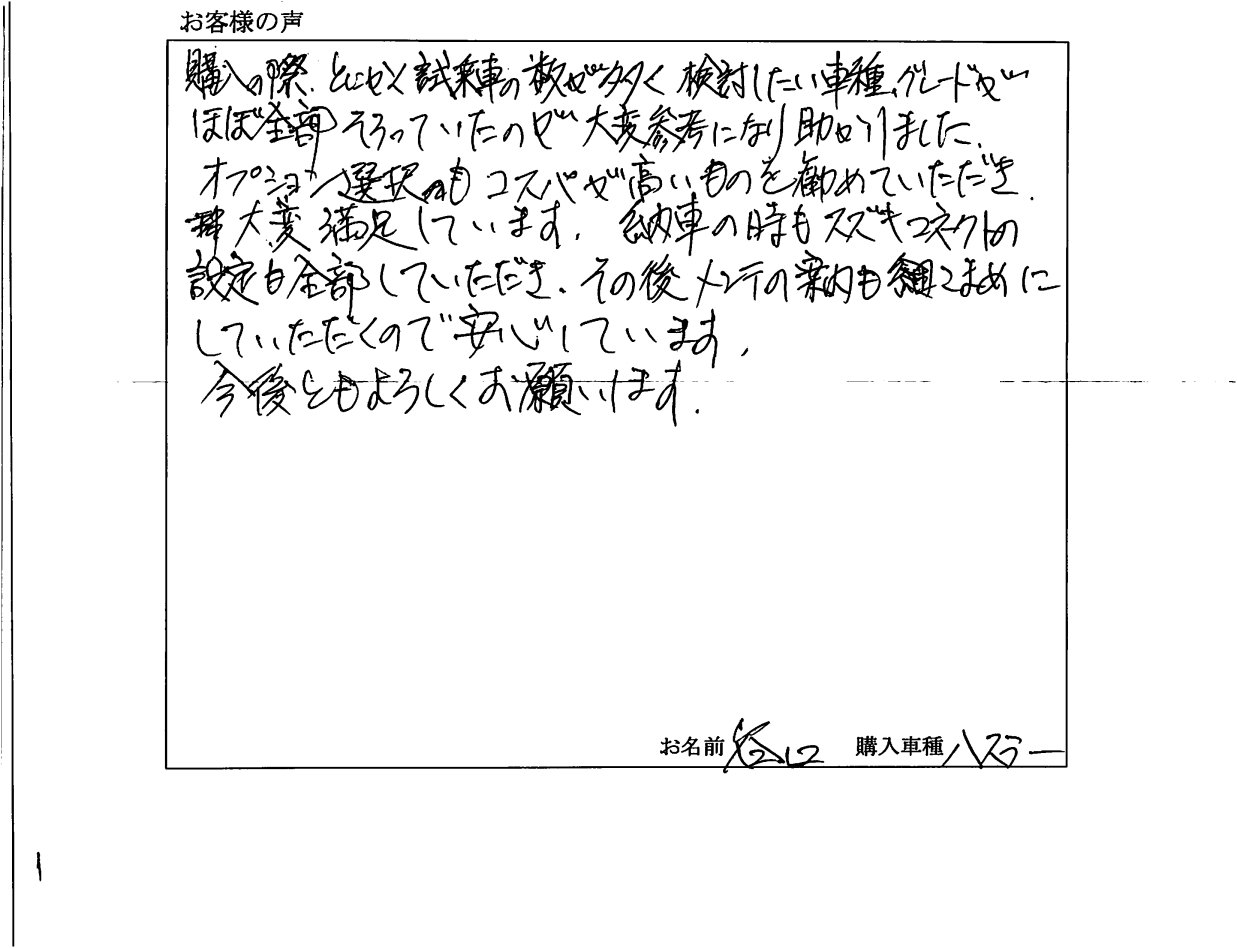 お客様の声
購入の際、とにかく試乗車の数が多く検討したい車種、グレードが
ほぼ全部そろっていたので大変参考になり助かりました。
オプション選択もコスパが高いものを勧めていただき、
大変満足しています。納車の時もスズキコネクトの
設定も全部していただき、その後メンテの案内もこまめに
していただくので安心しています。
今後ともよろしくお願いします。
お名前 谷口 購入車種 ハスラー